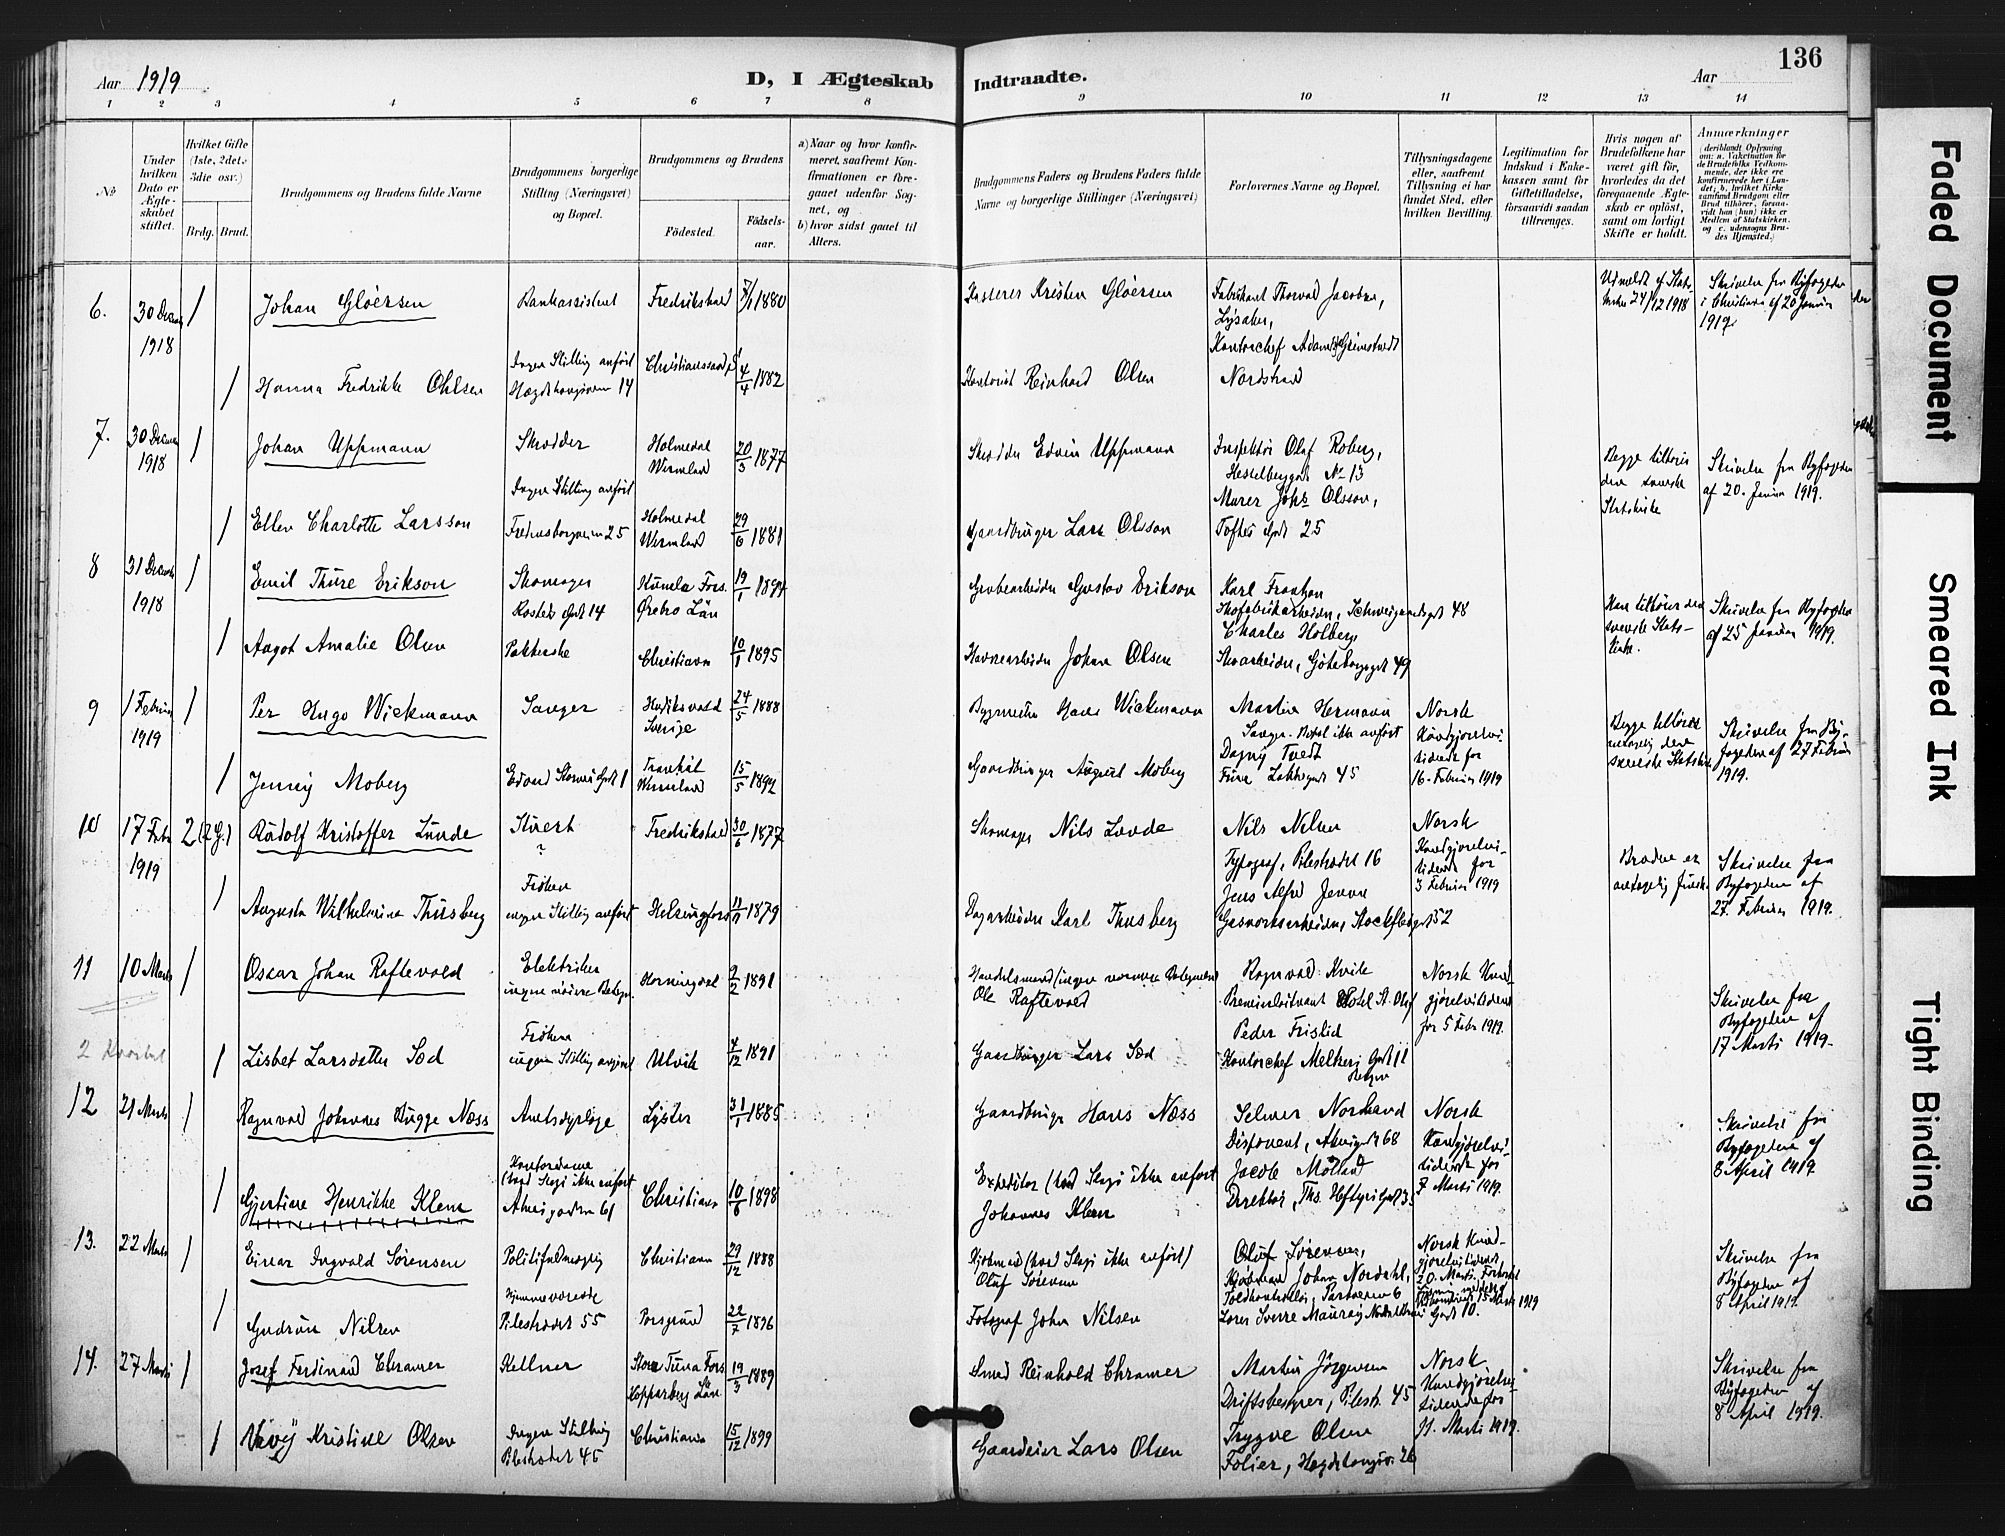 136
Aar 1919
D, I Ægteskab
Indtraadte.
Aar
1 2 3 4 5 6 7 8
9 10 11 12 13 14
№
Under hvilken Dato er Ægteskabet stiftet.
Hvilket Gifte (1ste, 2det, 3die osv.)
Brdg. Brud.
Brudgommens og Brudens fulde Navne
Brudgommens borgerlige Stilling (Næringsvei) og Bopæl.
Brudgommens og Brudens
Fødested. Fødselsaar.
a) Naar og hvor konfirmeret, saafremt Konfirmationen er foregaaet udenfor Sognet, og
b) hvor sidst gaaet til Alters.
Brudgommens Faders og Brudens Faders fulde Navne og borgerlige Stillinger (Næringsvei)
Forlovernes Navne og Bopæl.
Tillysningsdagene eller, saafremt Tillysning ei har fundet Sted, efter hvilken Bevilling.
Legitimation for Indskud i Enkekassen samt for Giftetilladelse, forsaavidt saadan tiltrænges.
Hvis nogen af Brudefolkene har været gift før, hvorledes da det foregaaende Ægteskab er opløst, samt om lovligt Skifte er holdt.
Anmærkninger (deriblandt Oplysning om: a. Vakcination for de Brudefolks Vedkommende, der ikke ere konfirmerede her i Landet; b. hvilket Kirkesamfund Brudgom eller Brud tilhører, forsaavidt han (hun) ikke er Medlem af Statskirken, og c. udensogns Brudes Hjemsted.)
6. 30 1918 / Johan Gløersen
Bankassistent
Fredrikshald 7/1 1880
Kasserer Kristen Gløersen
Fabrikant Thorvald Jacobsen,
Lysaker,
Kontorchef Adam Grimstvedt
Nordstrand
Udmeldt af Stats-
kirken 24/12 1918
Skrivelse fra Byfogden
i Christiania af 20 Januar
1919
/ Hanna Fredrikke Ohlsen
Ingen Stilling anført
Hægdehaugsveien 14
Christianssand 4/4 1882
Reinhard Olsen
7. 30 1918 / Johan Uppmann
Skrædder
Holmedal
Wermland 20/3 1877
Skrædder Edvin Uppmann
Inspektør Olaf Roberg,
Hesselberggt No 13
Murer Johs Olsson,
Toftes Gade 25
Begge tilhører
den svenske
Statskirke
Skrivelse fra Byfogden
af 20. Januar 1919.
/ Ellen Charlotte Larsson
Ingen Stilling anført
Fredensborgveien 25
Holmedal
Wermland 29/6 1881
Gaardbruger Lars Olsson
8 31 1918 / Emil Thure Erikson
Skomager
Kumla Fors.
Ørebro Län 19/1
Grubearbeider Gustav Erikson
Karl
Skofabrikarbeider, Schweigaardsgt 48
Charles Holberg
Skoarbeider, Göteborggt 49
Han tilhører den
svenske Stats-
kirke.
Skrivelse fra Byfogden
af 25 Januar 1919.
/ Aagot Amalie Olsen
Pakkerske
Christiania 10/1 1895
Havnearbeider Johan Olsen
9 1 Februar 1919 / Per Hugo Wickmann
Sanger
Sverige 24/5 1888
Bygmester Wickmann
Martin Hermann
Sanger. Bopæl ikke anført
Dagny Tvedt
45
Norsk
Kundgjørelsesti-
dende for
16. Februar 1919
Begge tilhører
den
svenske Statskirke
Skrivelse fra By-
fogden af 27 Februar
1919.
/ Jenny Moberg
Edvard Storms Gade 1
Wermland 15/5
Gaardbruger August Moberg
10 17 Febr 1919 2 (2 G.) Rudolf Kristoffer Lunde
Stuert
?
Fredrikstad 30/6 1877
Skomager Nils Lunde
Nils Nilsen
Typograf, Pilestrædet 16
Jens Alfred Jensen
Gasverksarbeider, Stockfletsgt 52
Norsk
Kundgjørelses-
tidende for
3 Februar 1919
Bruden er
antagelig finsk
Skrivelse fra
Byfogden af
27. Februar 1919.
/ Augusta Wilhelmina Thusberg
Frøken
ingen Stilling anført
Helsingfors 1879
Karl Thusberg
11 10 Marts / Oscar Johan Raftevold
Elektriker
Horningdal 2/2 1891
Ole Raftevold
Ragnvald Kvik
Premierløitnant Hotel St. Olaf
Peder Fristid
Kontorchef Meltzers Gade 11
Bergen
Norsk Kund-
gjørelsestidende
for 5 Febr 1919.
Skrivelse fra
Byfogden af
17 Marts 1919.
2 Kvartal
/ Lisbet Larsdatter Sæd
Frøken
ingen Stilling anført
Ulvik 4/12 1891
Gaardbruger Lars Sæd
12 21 Marts / Ragnvald Johannes Bugge Næss
Amtsdyrlæge
Lyster 31/1 1885
Gaardbruger Hans Næss
Selmer Norland
Disponent, Akersgt 68
Jacob Mølland
Direktør, Ths. Heftyes Gade
Norsk
Kundgjørelses-
tidende for
7 Marts 1919.
Skrivelse fra
Byfogden af
8 April 1919
/ Gjertine Henrikke Klem
Kontordame
(hvad Slags ikke anført
Akersgaden 61
Christiania 10/8 1898
Expeditør (hvad Slags ikke anført
Johannes Klem
13. 22 Marts / Einar Ingvald Sørensen
Politifuldmægtig
Christiania 29/12 1888
Kjøbmand (hvad Slags ikke anført)
Oluf Sørensen
Oluf Sørensen,
Kjøbmand Johan Nordahl,
Toldkontrollør, Parkveien 6
Norsk Kund-
gjørelsestidende
20. Marts.
15 Marts 1919
Skrivelse fra
Byfogden af
8 April 1919.
/ Gudrun Nilsen
Hjemmeværende
Pilestrædet 55
Porsgrund 22/7 1896
Fotograf John Nilsen
14. 27 Marts / Josef Ferdinand Chramer
Kellner
Stora Tuna Fors
Kopparberg Län 19/3 1889
Smed Reinhold Chramer
Martin Jørgensen
Driftsbestyrer, Pilestr. 45
Trygve Olsen
Følier, Hægdehaugsv. 26
Norsk
Kundgjørelses-
tidende for
Marts 1919.
Skrivelse fra
Byfogden af
8 April 1919.
/ Kristine Olsen
Ingen Stilling
Pilestrædet 45
Christiania 15/12 1899
Gaardeier Lars Olsen
Faded Document
Smeared Ink
Tight Binding